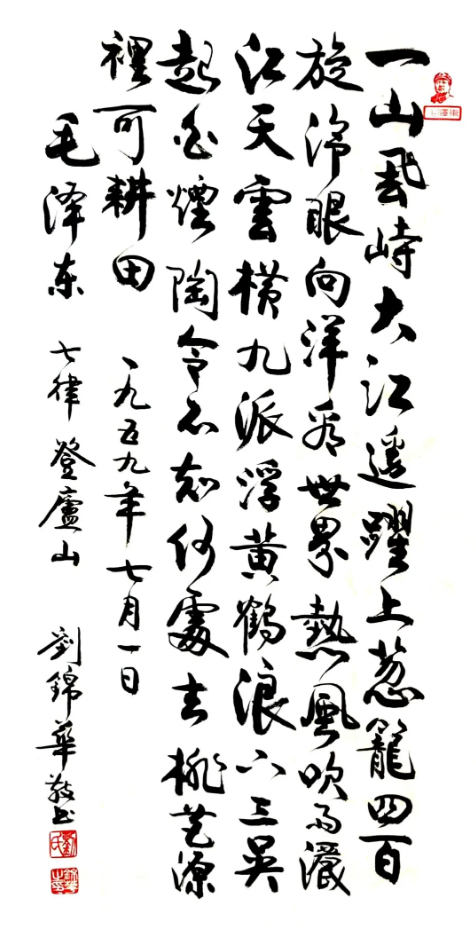 一山飛峙大江邊躍上葱籠四百
旋冷眼向洋看世界熱風吹雨灑
江天雲横九派浮黄鶴浪下三吴
起白煙陶令不知何處去桃花源
裡可耕田 一九五九年七月一日
毛泽东 七律 登廬山 劉錦華敬书